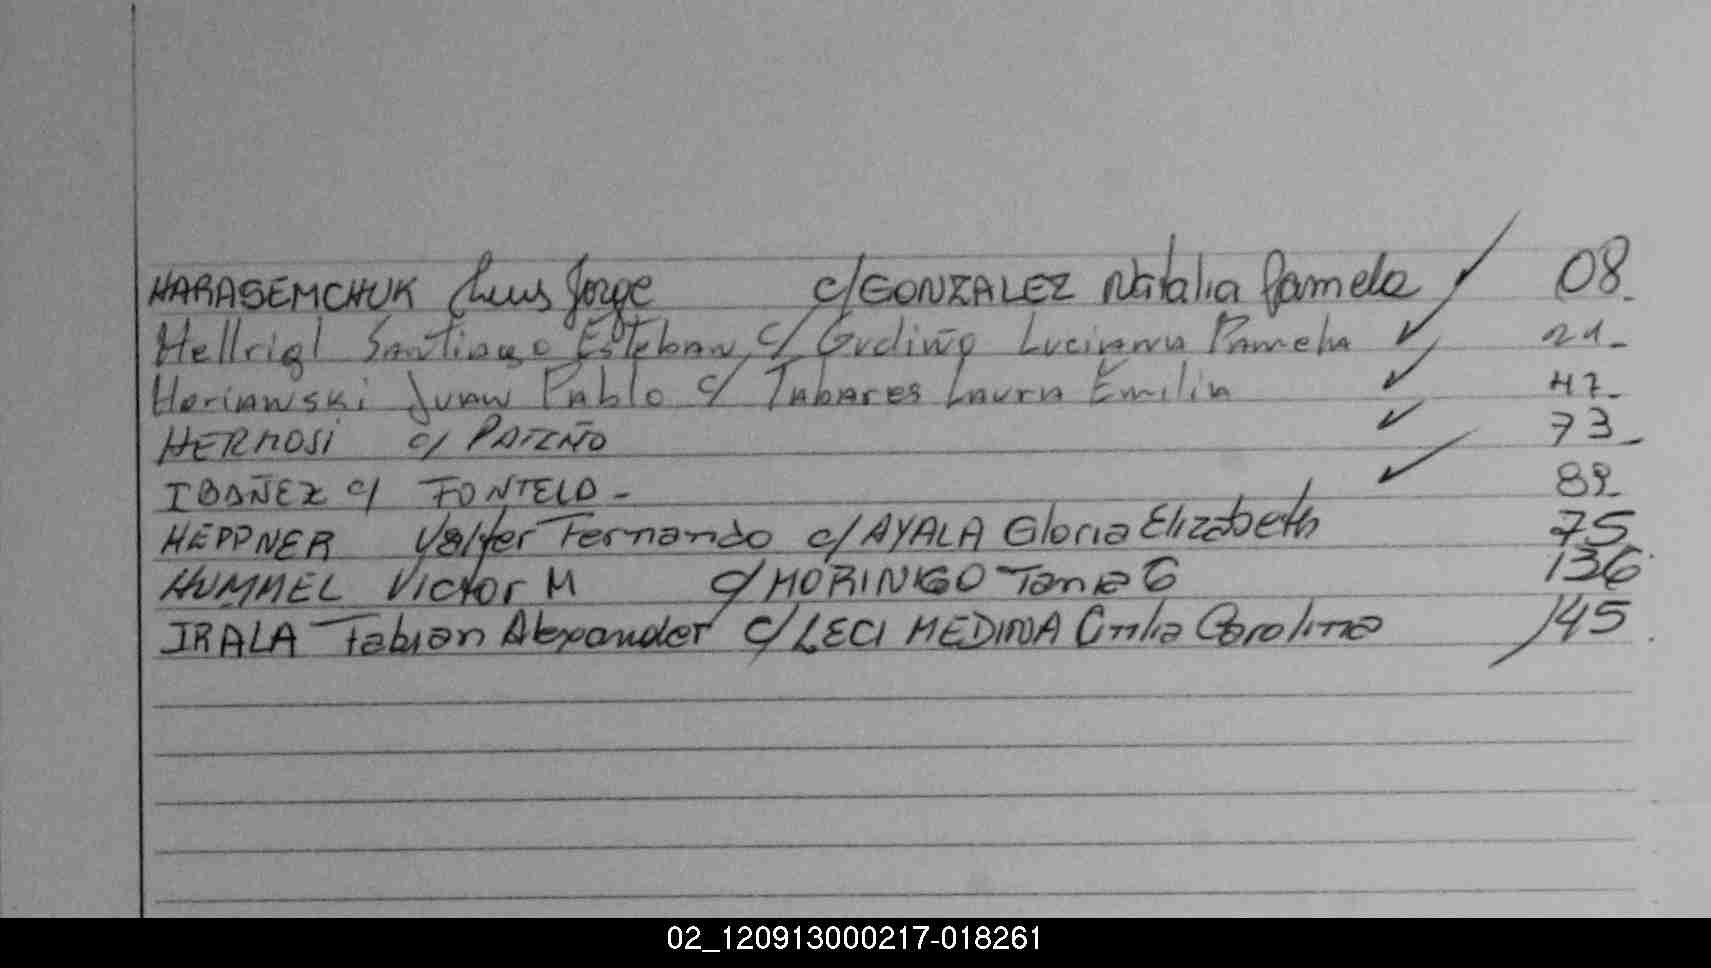 HARASEMCHUK Luis Jorge c/GONZALEZ Natalia Pamela 08.
Hellrigl Santiago Esteban c/ Gudiño Luciana Pamela 21-
Horianski Juan Pablo c/ Tabares Laura Emilia 47-
HERMOSI c/ PATIÑO 73-
IBAÑEZ c/ FONTELA - 89-
HEPPNER Walter Fernando c/AYALA Gloria Elizabeth 75
HUMMEL Victor M c/MORINIGO Tania G 136
IRALA Fabian Alexander c/LECI MEDINA Carolina 145
02_120913000217-018261